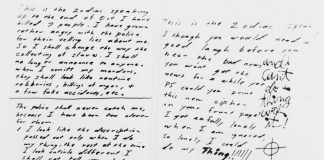 This is the Zodiac speaking
up to the end of Oct I have
killed 7 people. I have grown
rather angry with the police
for their telling lies about me.
So I shall change the way the
collecting of slaves. I shall
no longer announce to anyone.
when I comitt my murders,
they shall look like routine
robberies, killings of anger, &
a few fake accidents, etc.
The police shall never catch me,
because I have been too clever
for them.
1 I look like the description
passed out only when I do
my thing, the rest of the time
I look entirle different. I
shall not tell you
This is the Zodiac speak
I though you would need a
good laugh before you
hear the bad news
you won't get the
news for a while yet
PS could you print
this new cipher
on your frunt page
I get awfully lonely
when I am ignored
So lonely I could
do my Thing !!!!!!
and i
can't
do a
thing
with
it!